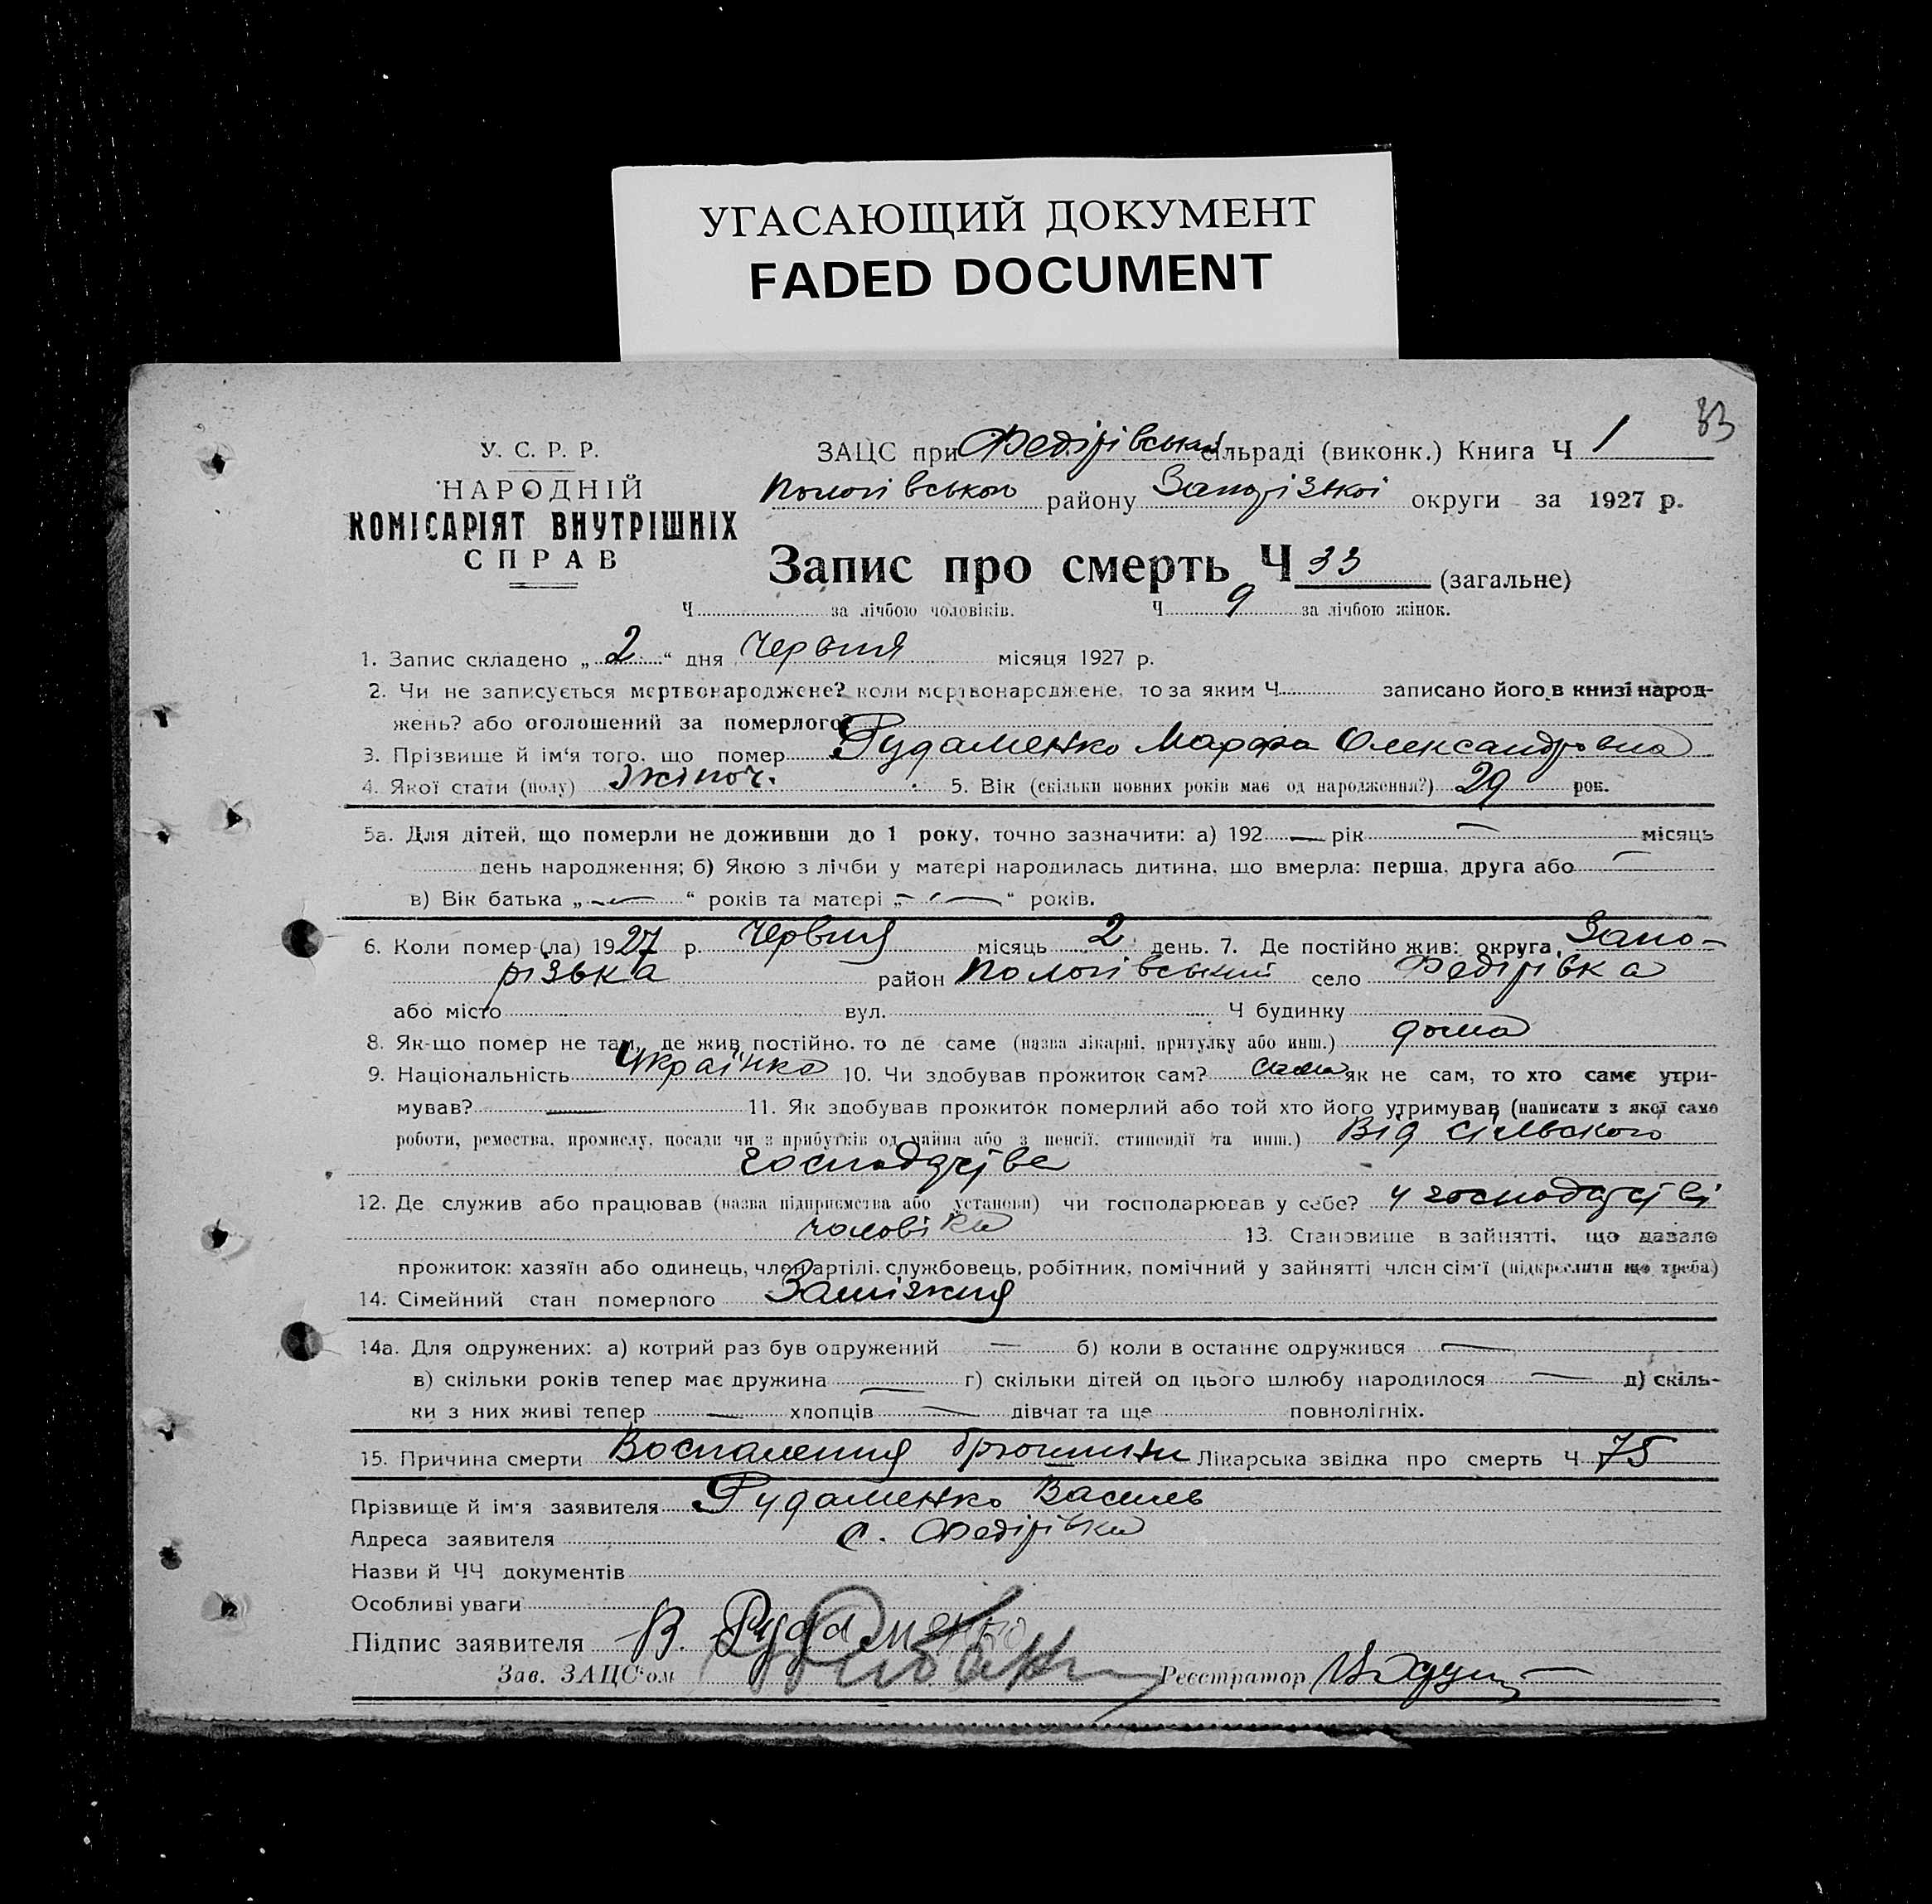 УГАСАЮЩИЙ ДОКУМЕНТ
FADED DOCUMENT
33
У. С. Р. Р.
НАРОДНІЙ
КОМІСАРІЯТ ВНУТРІШНІХ
СПРАВ
ЗАЦС при Федірівській сільраді (виконк.) Книга Ч 1
Пологівського району Запорізької округи за 1927 р.
Запис про смерть Ч 33 (загальне)
Ч за лічбою чоловіків. Ч 9 за лічбою жінок.
1. Запис складено „ 2 “ дня Червня місяця 1927 р.
2. Чи не записується мертвонароджене? коли мертвонароджене, то за яким Ч записано його в книзі народ-
жень? або оголошений за померлого?
3. Прізвище й ім'я того, що помер Рудаменко Марфа Олександровна
4. Якої стати (полу) жіноч. 5. Вік (скільки повних років має од народження?) 29 рок.
5а. Для дітей, що померли не доживши до 1 року, точно зазначити: а) 192 — рік — місяць
день народження; б) Якою з лічби у матері народилась дитина, що вмерла: перша, друга або —
в) Вік батька „ — “ років та матері „ — “ років.
6. Коли помер (ла) 1927 р. Червня місяць 2 день. 7. Де постійно жив: округа Запо-
різька район Пологівський село Федірівка
або місто вул. Ч будинку
8. Як-що помер не там, де жив постійно, то де саме (назва лікарні, притулку або инш.) дома
9. Національність Українка 10. Чи здобував прожиток сам? сама як не сам, то хто саме утри-
мував? — 11. Як здобував прожиток померлий або той хто його утримував (написати з якої саме
роботи, ремества, промислу, посади чи з прибутків од майна або з пенсії, стипендії та инш.) Від сільського
господарства
12. Де служив або працював (назва підприємства або установи) чи господарював у себе? у господарстві
чоловіка 13. Становище в зайнятті, що давало
прожиток: хазяїн або одинець, член артілі, службовець, робітник, помічний у зайнятті член сім'ї (підкреслити що треба)
14. Сімейний стан померлого Замізжня
14а. Для одружених: а) котрий раз був одружений — б) коли в останнє одружився —
в) скільки років тепер має дружина — г) скільки дітей од цього шлюбу народилося — д) скіль-
ки з них живі тепер — хлопців — дівчат та ще повнолітніх.
15. Причина смерти Воспаления брюшины Лікарська звідка про смерть Ч 75
Прізвище й ім'я заявителя Рудаменко Василь
Адреса заявителя с. Федірівка
Назви й ЧЧ документів
Особливі уваги
Підпис заявителя В. Рудаменко
Зав. ЗАЦС'ом Реєстратор